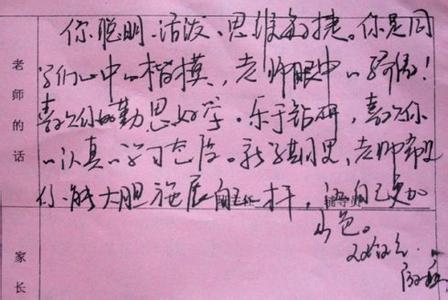 老师的话
你聪明、活泼、思维敏捷。你是同
学们心中的楷模，老师眼中的骄傲！
喜欢你的勤思好学。乐于钻研，喜欢你
的认真的学习态度。新学期里，老师希望
你能大胆施展自己，让自己更加
出色。
家长